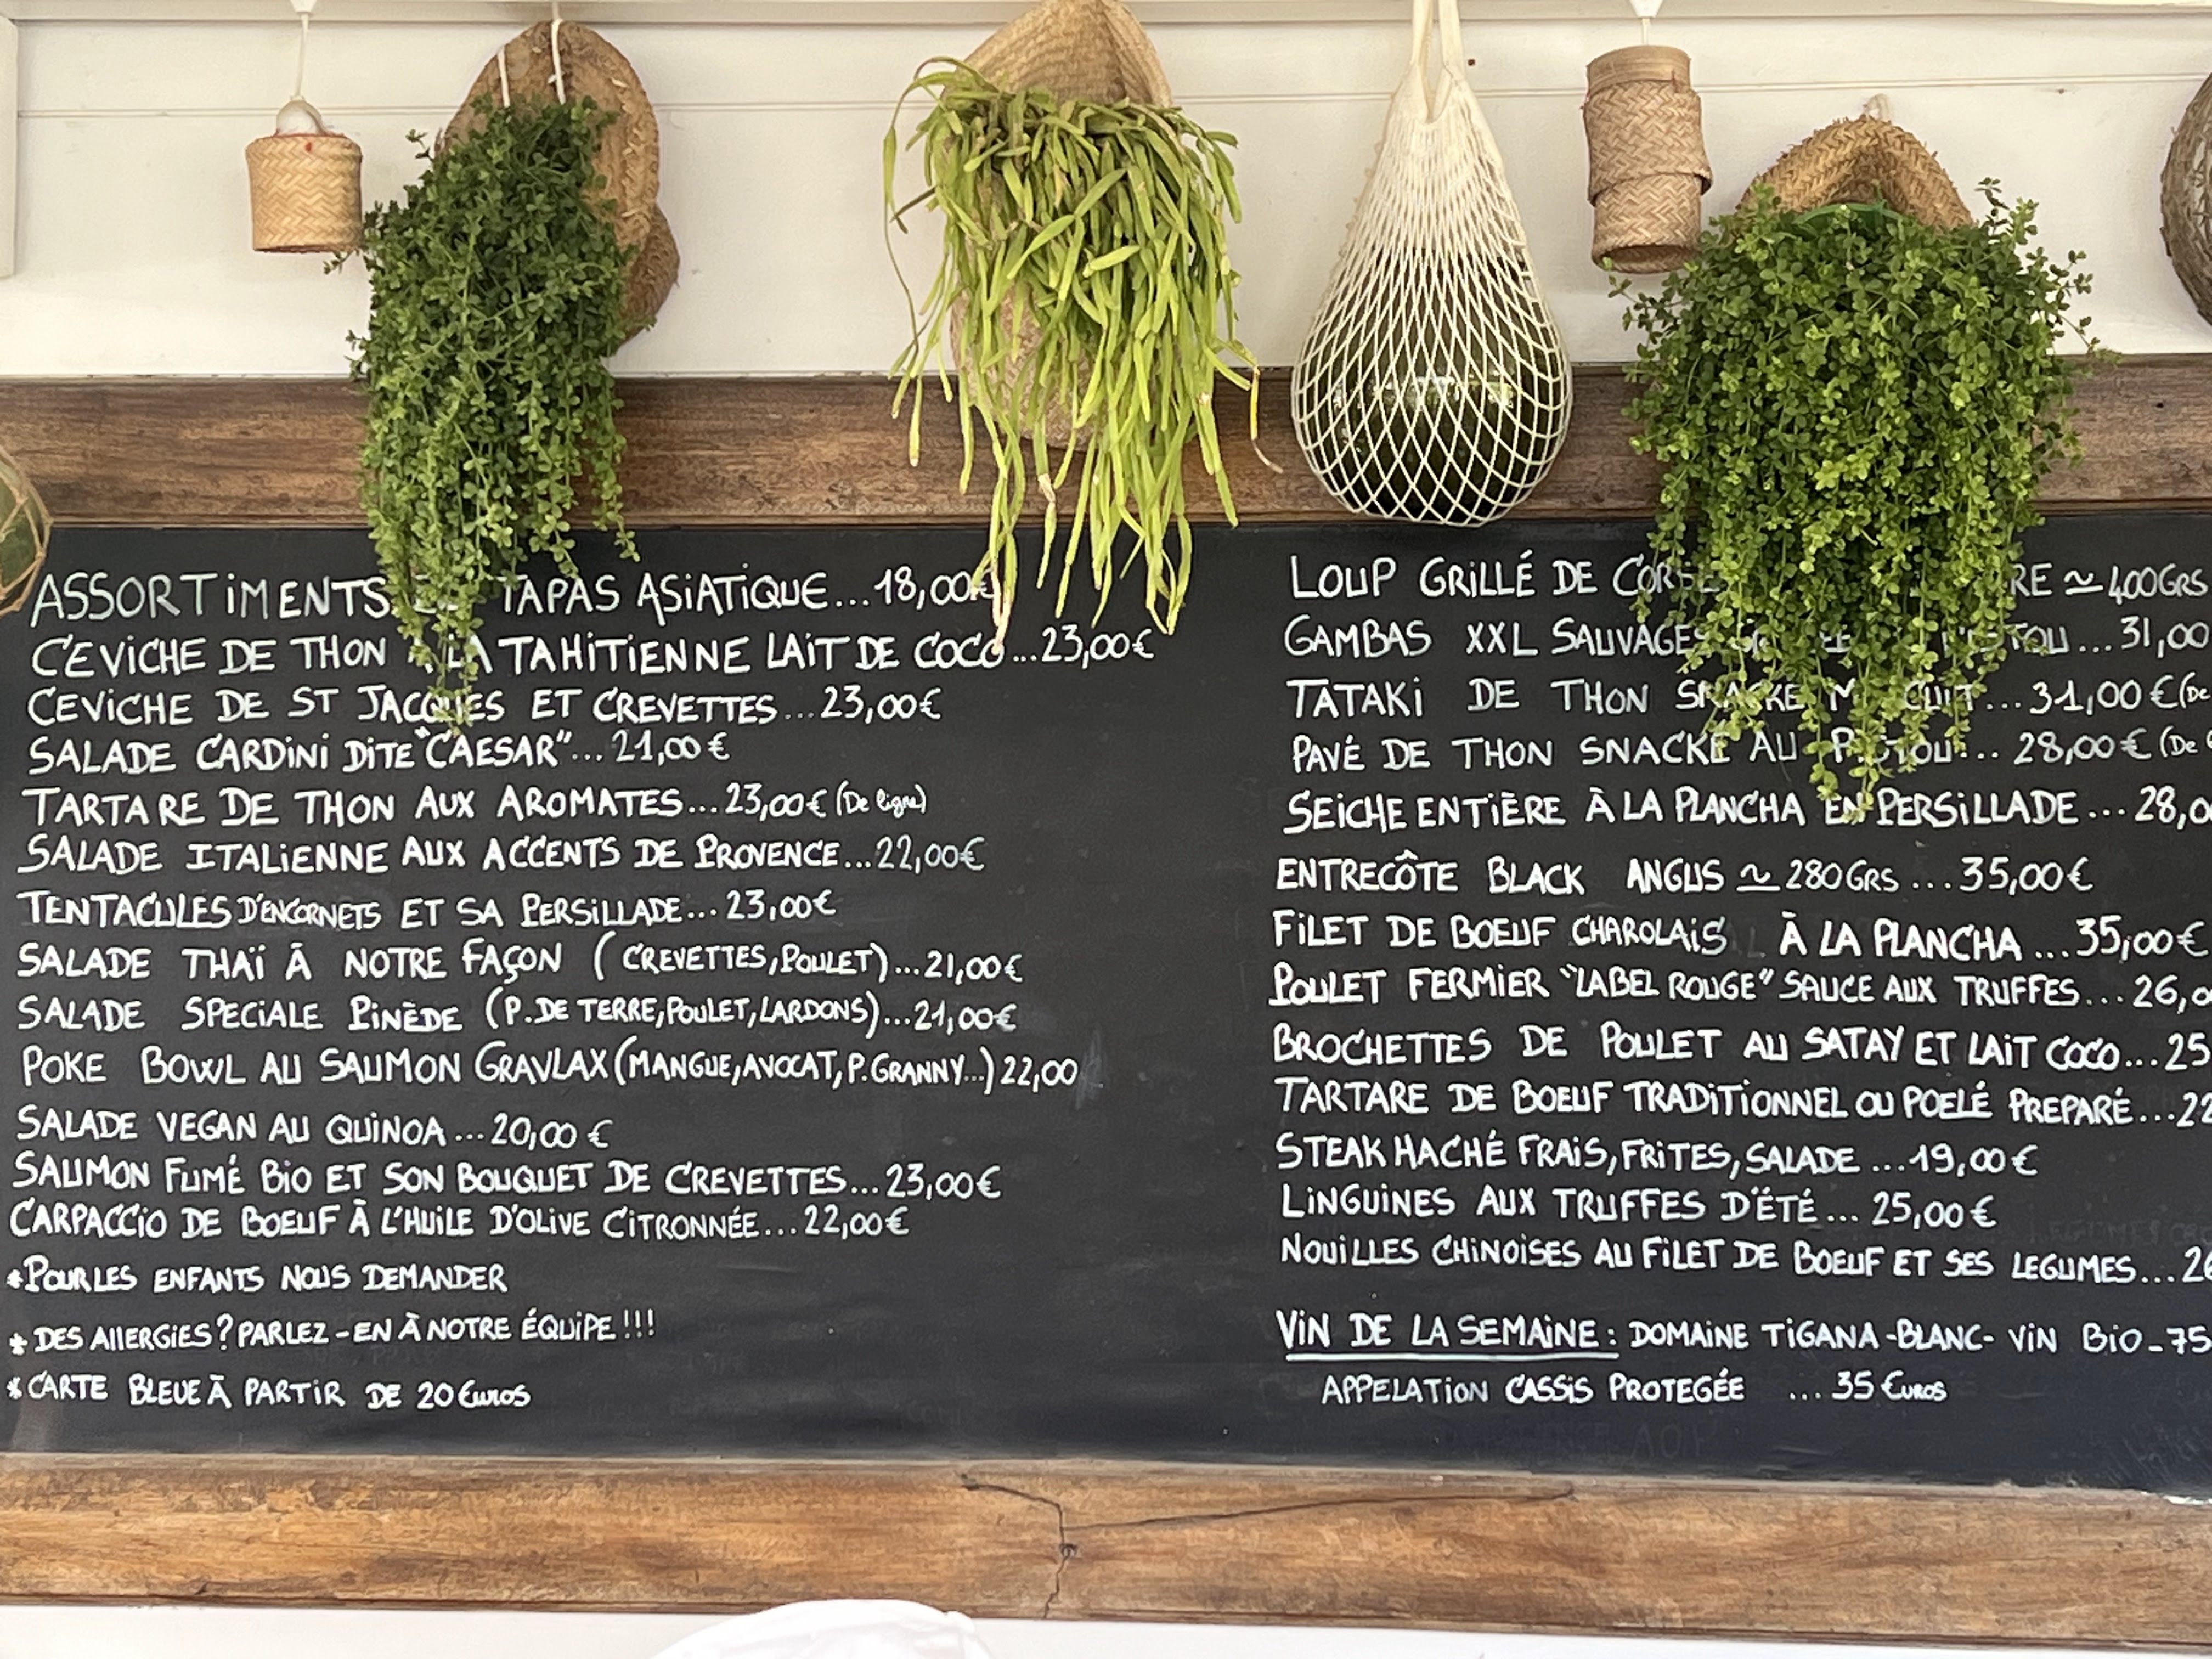 ASSORTIMENTS TAPAS ASIATIQUE...18,00€
CEVICHE DE THON LA TAHITIENNE LAIT DE COCO...23,00€
CEVICHE DE ST JACQUES ET CREVETTES...23,00€
SALADE CARDINI DITE "CAESAR"...21,00€
TARTARE DE THON AUX AROMATES...23,00€ (De ligne)
SALADE ITALIENNE AUX ACCENTS DE PROVENCE...22,00€
TENTACULES D'ENCORNETS ET SA PERSILLADE...23,00€
SALADE THAÏ À NOTRE FAÇON (CREVETTES,POULET)...21,00€
SALADE SPECIALE PINÈDE (P.DE TERRE,POULET,LARDONS)...21,00€
POKE BOWL AU SAUMON GRAVLAX (MANGUE,AVOCAT,P.GRANNY...) 22,00
SALADE VEGAN AU QUINOA...20,00 €
SAUMON FUMÉ BIO ET SON BOUQUET DE CREVETTES...23,00€
CARPACCIO DE BOEUF À L'HUILE D'OLIVE CITRONNÉE...22,00€
*POUR LES ENFANTS NOUS DEMANDER
* DES AllERGIES? PARLEZ-EN À NOTRE ÉQUIPE!!!
*CARTE BLEUE À PARTIR DE 20 €uros
LOUP GRILLÉ DE ≃ 400GRS
GAMBAS XXL SAUVAGES ...31,00
TATAKI DE THON ...31,00€ (De
PAVÉ DE THON SNACKÉ AU PISTOU... 28,00€ (De
SEICHE ENTIÈRE À LA PLANCHA EN PERSILLADE...28,0
ENTRECÔTE BLACK ANGUS ≃ 280GRS...35,00€
FILET DE BOEUF CHAROLAIS À LA PLANCHA...35,00€
POULET FERMIER "LABEL ROUGE" SAUCE AUX TRUFFES...26,0
BROCHETTES DE POULET AU SATAY ET LAIT COCO...25
TARTARE DE BOEUF TRADITIONNEL OU POELÉ PREPARÉ...22
STEAK HACHÉ FRAIS,FRITES,SALADE...19,00€
LINGUINES AUX TRUFFES D'ÉTÉ...25,00€
NOUILLES CHINOISES AU FILET DE BOEUF ET SES LEGUMES...26
VIN DE LA SEMAINE: DOMAINE TIGANA-BLANC- VIN BIO-75
APPELATION CASSIS PROTEGÉE ...35 €uros